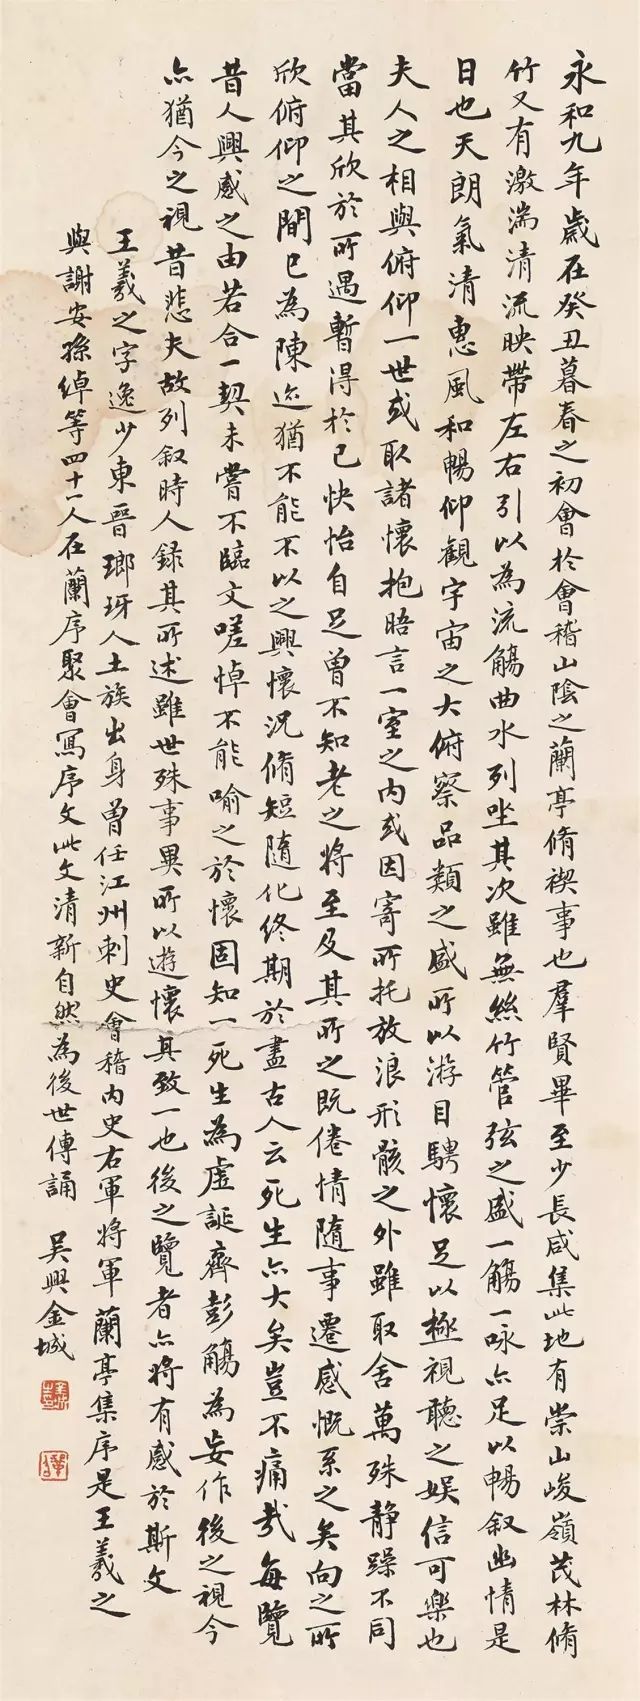 永和九年歲在癸丑暮春之初會於會稽山陰之蘭亭脩禊事也羣賢畢至少長咸集此地有崇山峻嶺茂林脩
竹又有激湍清流映帶左右引以為流觴曲水列坐其次雖無絲竹管弦之盛一觴一咏亦足以暢叙幽情是
日也天朗氣清惠風和暢仰觀宇宙之大俯察品類之盛所以游目騁懷足以極視聽之娛信可樂也
夫人之相與俯仰一世或取諸懷抱晤言一室之內或因寄所托放浪形骸之外雖取舍萬殊静躁不同
當其欣於所遇暫得於己快怡自足曾不知老之將至及其所之既倦情隨事遷感慨系之矣向之所
欣俯仰之間已為陳迹猶不能不以之興懷況脩短隨化終期於盡古人云死生亦大矣豈不痛哉每覽
昔人興感之由若合一契未嘗不臨文嗟悼不能喻之於懷固知一死生為虛誕齊彭觴為妄作後之視今
亦猶今之視昔悲夫故列叙時人錄其所述雖世殊事異所以遊懷其致一也後之覽者亦將有感於斯文
王羲之字逸少東晉瑯玡人士族出身曾任江州刺史會稽內史右軍將軍蘭亭集序是王羲之
與謝安孫綽等四十一人在蘭序聚會寫序文此文清新自然為後世傳誦
吳興金城